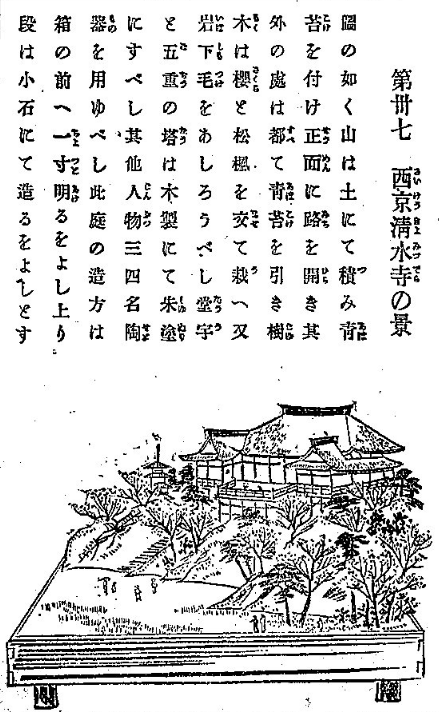 第卅七　西京淸水寺の景
圖の如く山は土にて積み靑
苔を付け正面に路を開き其
外の處は都て靑苔を引き樹
木は櫻と松楓を交て栽へ又
岩下毛をあしろうべし堂宇
と五重の塔は木製にて朱塗
にすべし其他人物三四名陶
器を用ゆべし此庭の造方は
箱の前へ一寸明るをよし上り
段は小石にて造るをよしとす